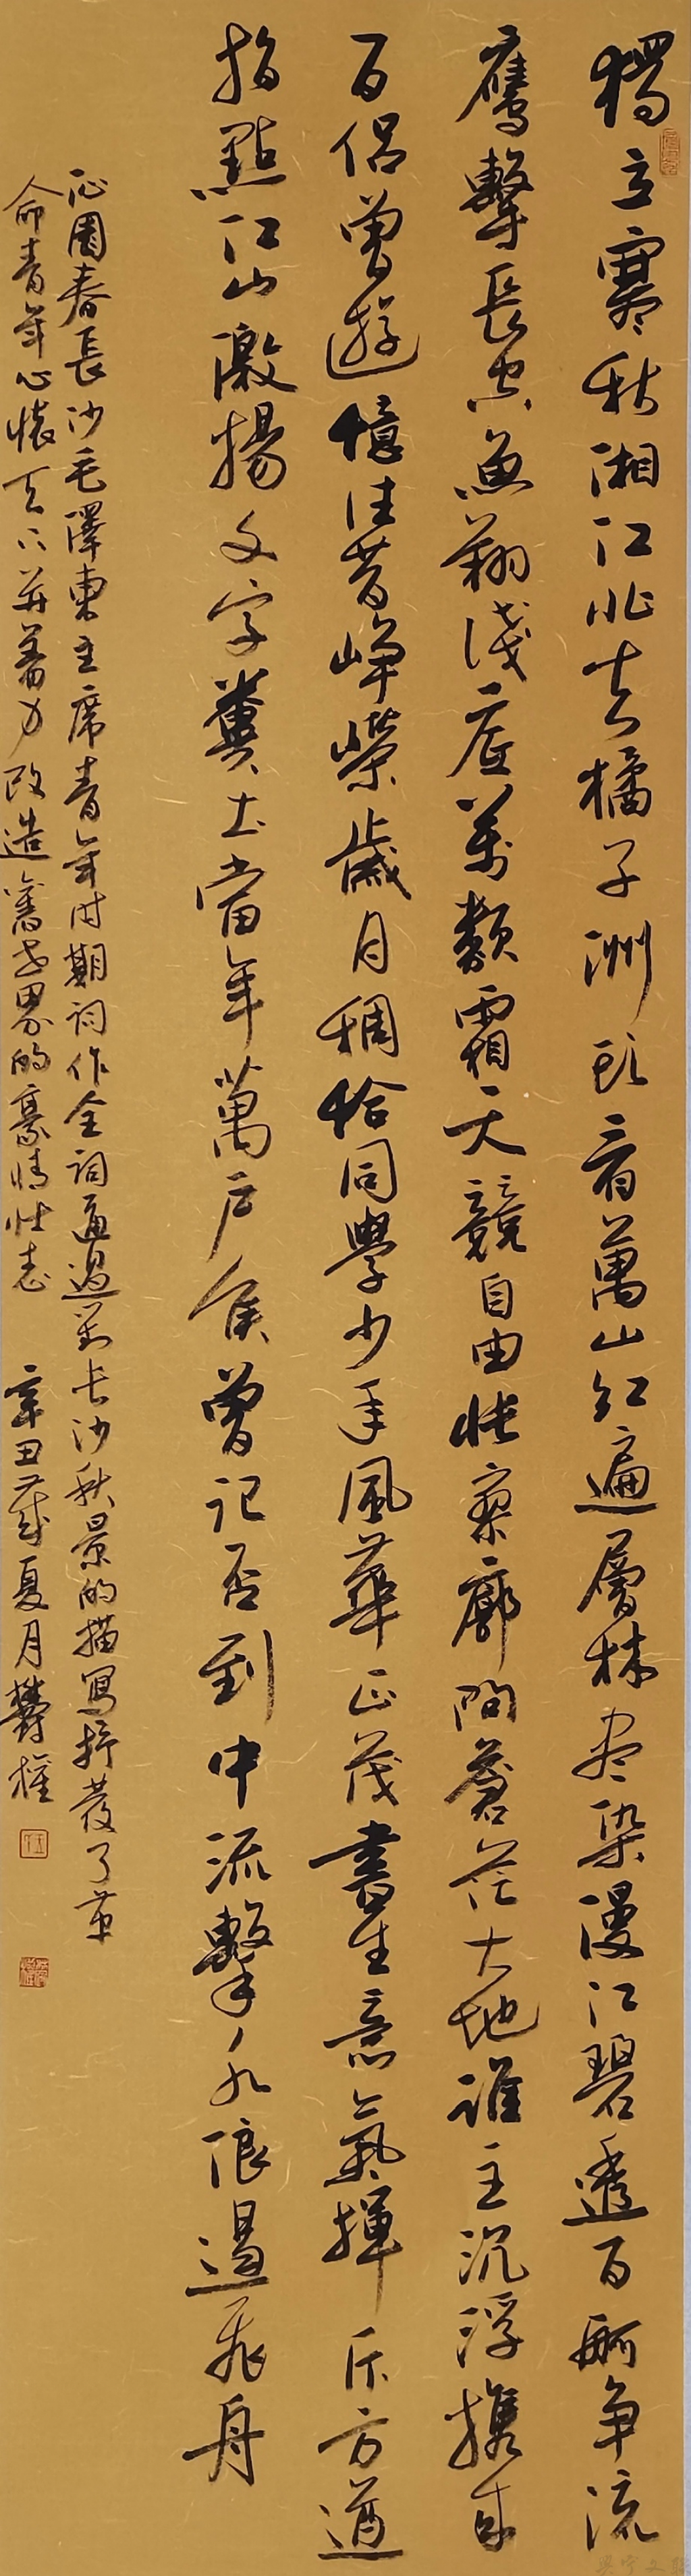 獨立寒秋湘江北去橘子洲頭看萬山紅遍層林盡染漫江碧透百舸爭流
鷹擊長空魚翔淺底萬類霜天競自由悵寥廓問蒼茫大地誰主沉浮攜來
百侶曾遊憶往昔崢嶸歲月稠恰同學少年風華正茂書生意氣揮斥方遒
指點江山激揚文字糞土當年萬戶侯曾記否到中流擊水浪遏飛舟
沁園春長沙毛澤東主席青年时期詞作全詞通過對长沙秋景的描寫抒發了革
命青年心懷天下并着力改造舊世界的豪情壯志 辛丑歲夏月